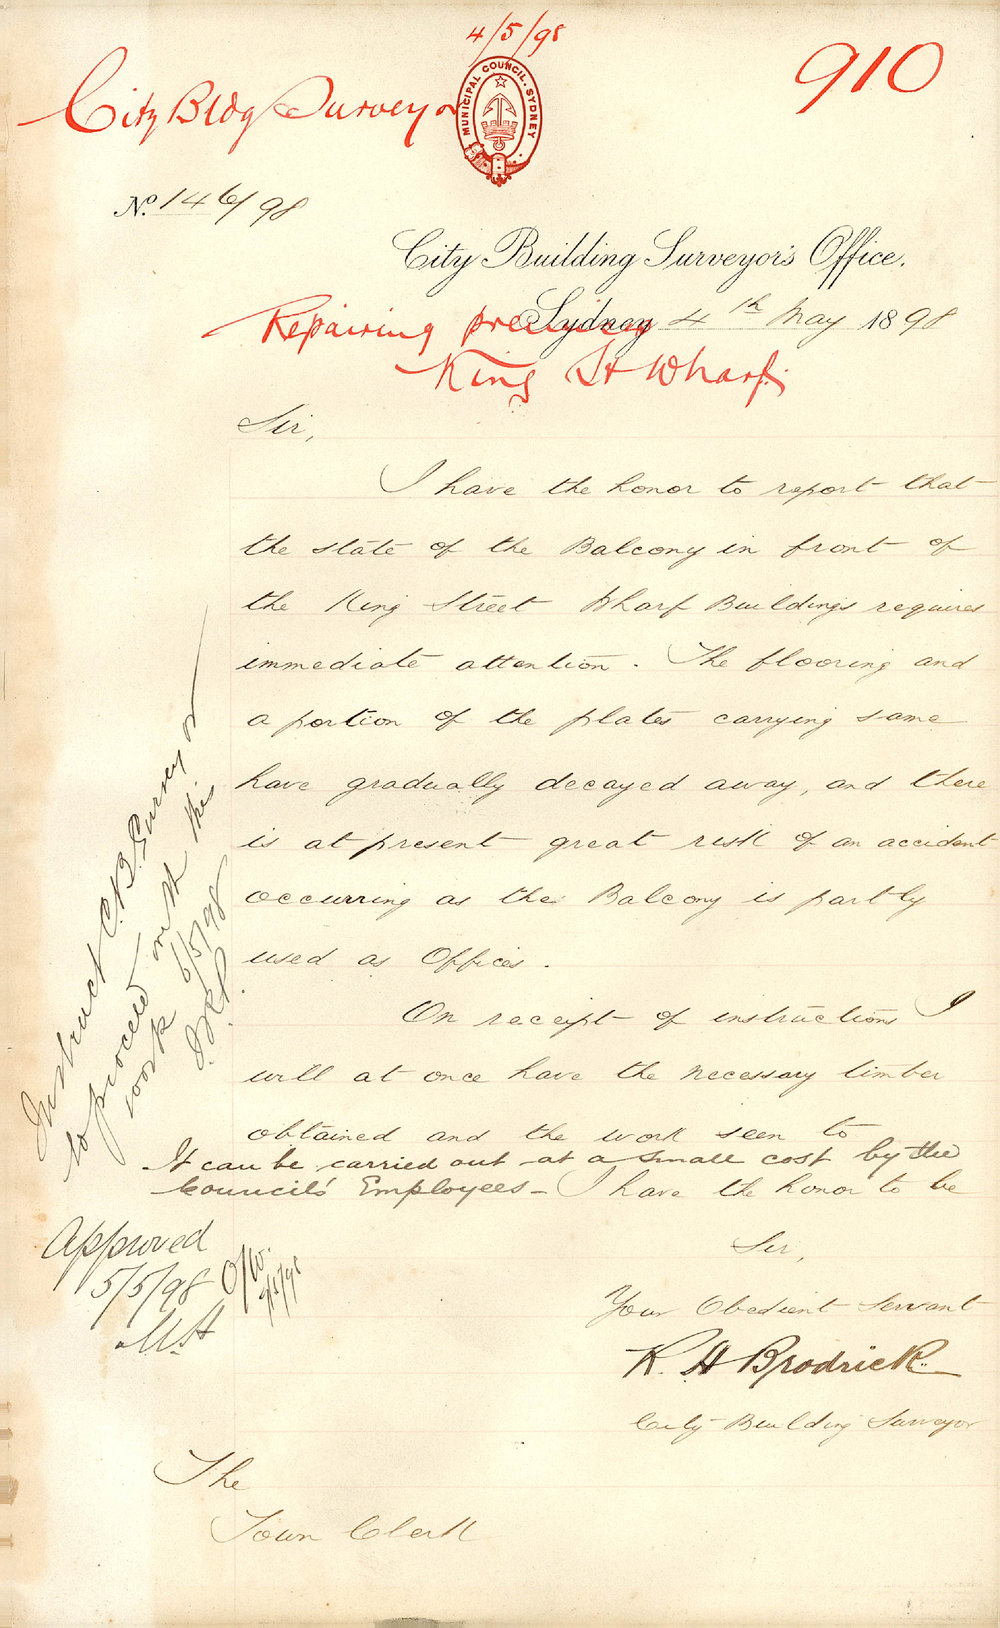 4/5/98
910
City Bldg Surveyor
MUNICIPAL COUNCIL. SYDNEY
No. 146/98
City Building Surveyor's Office.
Sydney 4th May 1898
Repairing premises
King St Wharf.
Sir,
I have the honor to report that
the state of the Balcony in front of
the King Street Wharf Buildings requires
immediate attention. The flooring and
a portion of the plates carrying same
have gradually decayed away, and there
is at present great risk of an accident
occurring as the Balcony is partly
used as Offices.
On receipt of instructions I
will at once have the necessary timber
obtained and the work seen to
It can be carried out at a small cost by the
Council's Employees - I have the honor to be
Sir,
Your Obedient Servant
R. H Brodrick.
City Building Surveyor
The
Town Clerk
Instruct C.B. Surveyor
to proceed with this
work 6/5/98
Approved
5/5/98